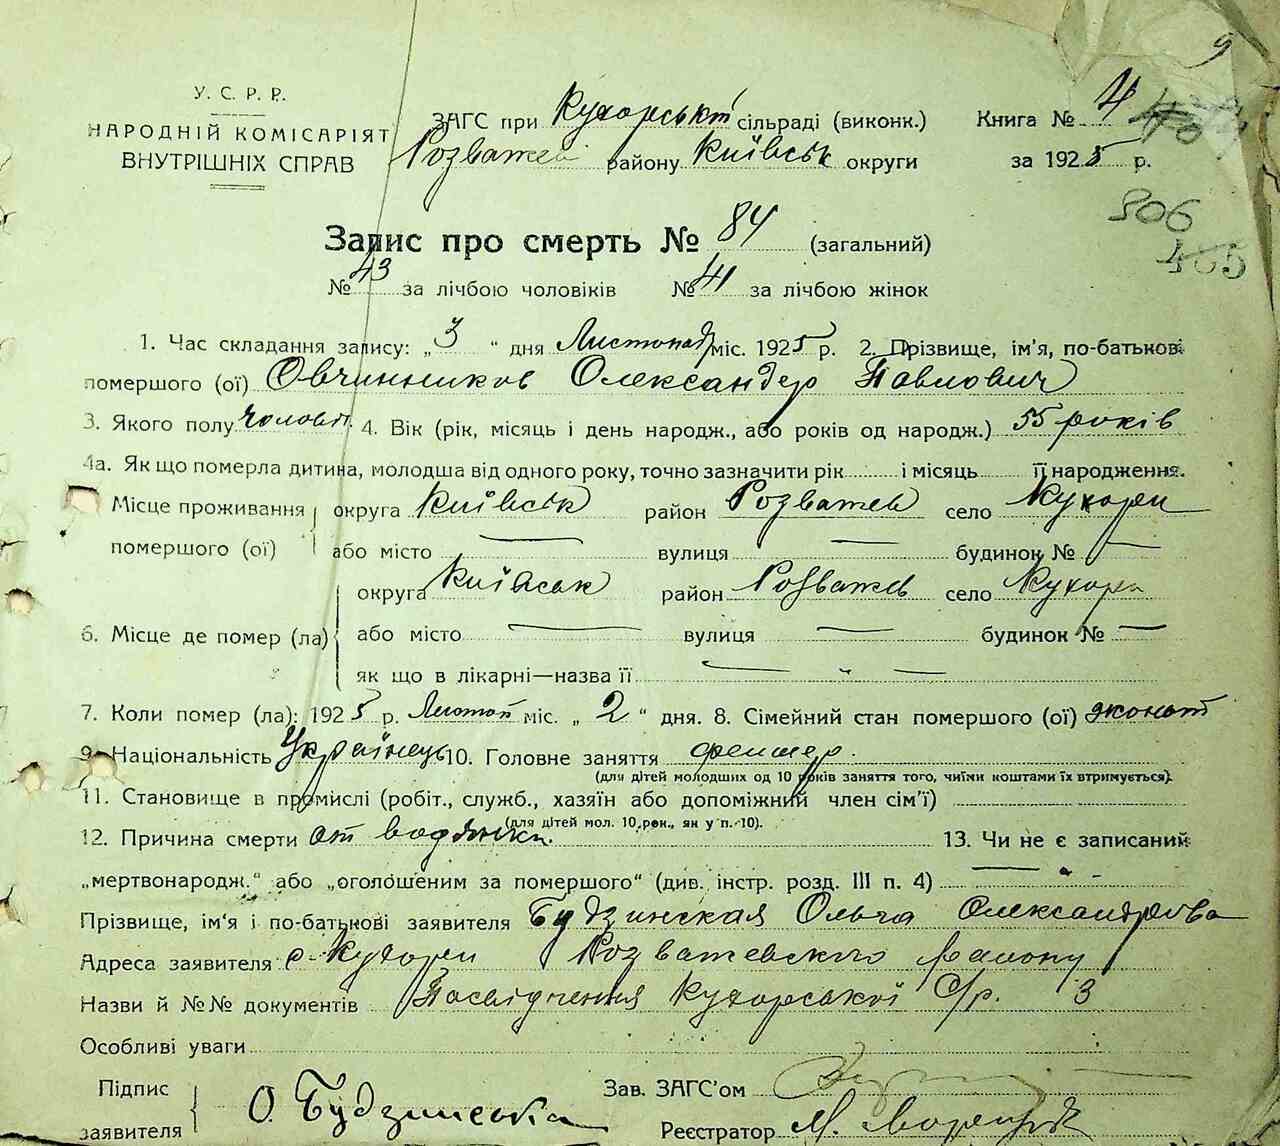 9
У. С. Р. Р.
НАРОДНІЙ КОМІСАРІЯТ
ВНУТРІШНІХ СПРАВ
ЗАГС при Кухорській сільраді (виконк.)
Розважев району Київськ округи
Книга № 4
за 1925 р.
306
465
Запис про смерть № 84 (загальний)
№ 43 за лічбою чоловіків № 41 за лічбою жінок
1. Час складання запису: „3“ дня Листопад міс. 1925 р. 2. Прізвище, ім'я, по-батькові
помершого (ої) Овчинников Олександер Павлович
3. Якого полу чоловіч. 4. Вік (рік, місяць і день народж., або років од народж.) 55 років
4а. Як що померла дитина, молодша від одного року, точно зазначити рік і місяць її народження.
Місце проживання округа Київськ район Розважев село Кухари
помершого (ої) або місто — вулиця — будинок № —
округа Київськ район Розважев село Кухари
6. Місце де помер (ла) або місто — вулиця — будинок № —
як що в лікарні—назва її — „ —
7. Коли помер (ла): 1925 р. Листоп міс. „2“ дня. 8. Сімейний стан помершого (ої) жонат
9. Національність Українець 10. Головне заняття фельшер.
(для дітей молодших од 10 років заняття того, чиїми коштами їх втримується).
11. Становище в промислі (робіт., служб., хазяїн або допоміжний член сім'ї)
(для дітей мол. 10 рок., як у п. 10).
12. Причина смерти от водянки. 13. Чи не є записаний
„мертвонародж.“ або „оголошеним за помершого“ (див. інстр. розд. III п. 4) — „ -
Прізвище, ім'я і по-батькові заявителя Будзинская Ольга Олександровна
Адреса заявителя с. Кухари Розважевского району
Назви й №№ документів Посвідчення Кухорської С/р. 3
Особливі уваги
Підпис
заявителя О. Будзинська
Зав. ЗАГС'ом
Реєстратор М.